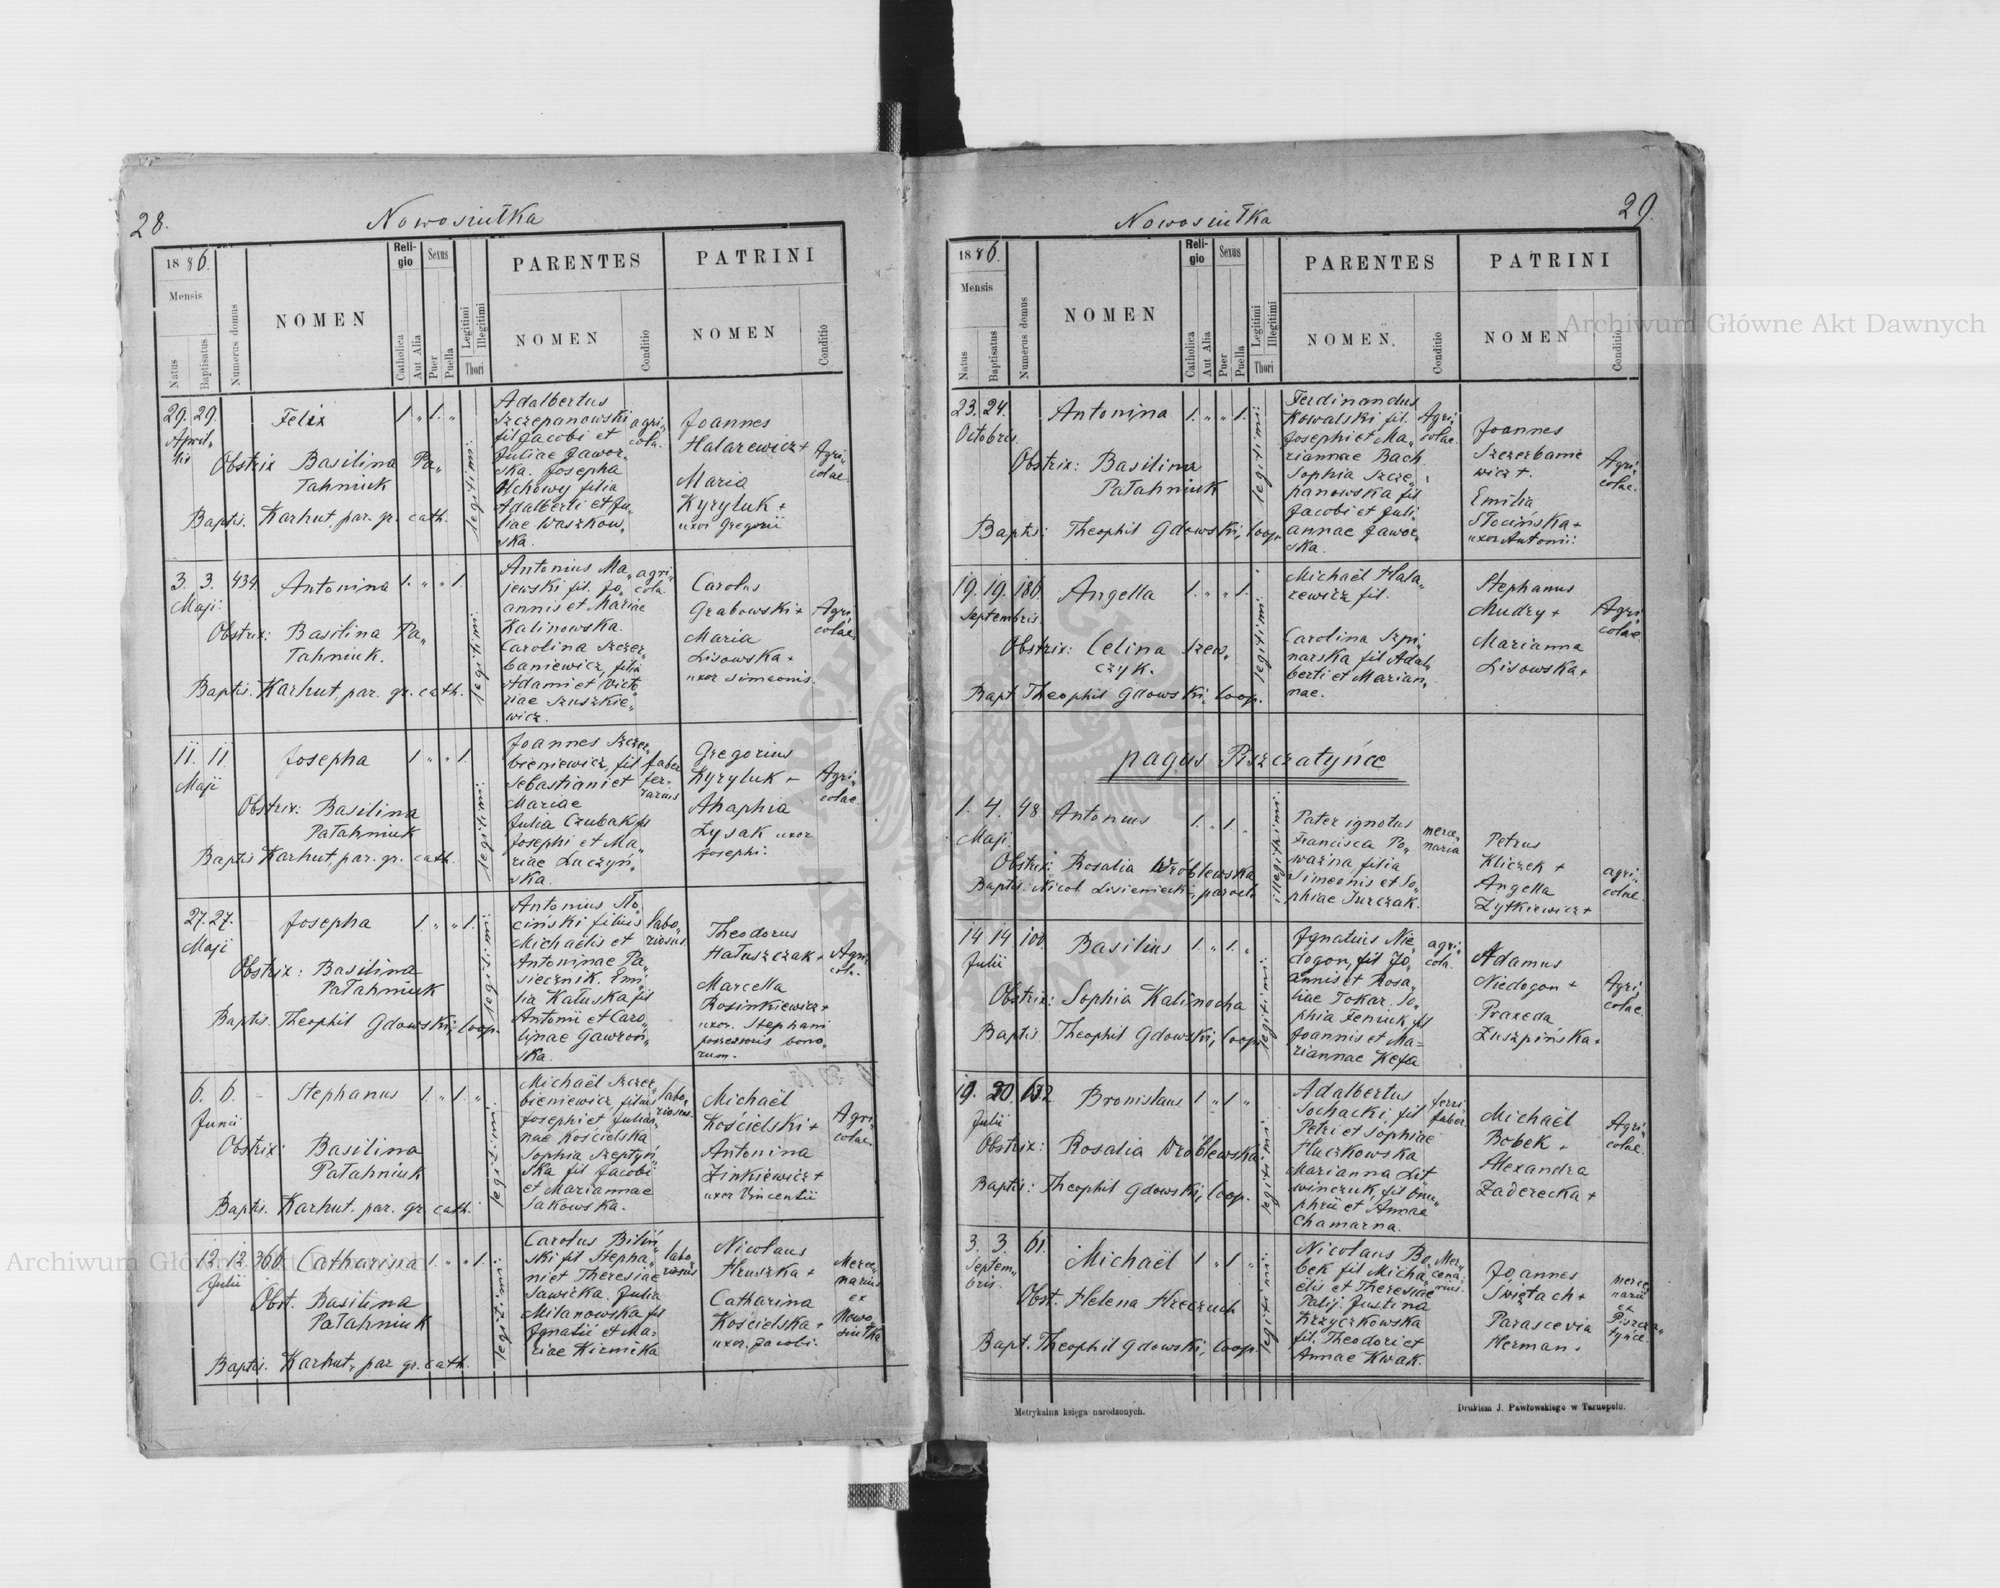 28.
Nowosiułka
1886.
Mensis
Natus
Baptisatus
Numerus domus
NOMEN
Religio
Catholica
Aut Alia
Sexus
Puer
Puella
Legitimi
Illegitimi
Thori
PARENTES
NOMEN
Conditio
PATRINI
NOMEN
Conditio
29. 29. Felix 1. „ 1. „
Aprilis
Obstrix Basilina Pa„
Tahniuk
Baptis. Karhut, par. gr. cath.
legitimi
Adalbertus
Szczepanowski
fil Jacobi et
Juliae Jawor„
ska. Josepha
Uchowy filia
Adalberti et Ju„
liae Waszkow„
ska.
agri„
cola.
Joannes
Halarewicz +
Maria
Kyryluk +
uxor Gregorii
Agri„
colae.
3. 3. 434. Antonina 1. „ „ 1.
Maji
Obstrix: Basilina Pa„
Tahniuk.
Baptis. Karhut, par. gr. cath.
legitimi
Antonius Ma„
jewski fil. Jo„
annis et Mariae
Kalinowska.
Carolina Szczer„
baniewicz, filia
Adami et Victo„
riae Szuszkie„
wicz.
agri„
cola.
Carolus
Grabowski +
Maria
Lisowska +
uxor Simeonis.
Agri„
colae.
11. 11 Josepha 1 „ „ 1.
Maji
Obstrix: Basilina
Patahniuk
Baptis Karhut, par. gr. cath.
legitimi
Joannes Szczer„
bieniewicz, fil
Sebastiani et
Mariae
Julia Czubak fil
Josephi et Ma„
riae Luczyń„
ska.
faber
fer„
rarius
Gregorius
Kyryluk +
Ahaphia
Łysak uxor
Josephi.
Agri„
colae.
27. 27. - Josepha 1. „ „ 1.
Maji
Obstrix: Basilina
Patahniuk
Baptis. Theophil Gdowski, Coop.
legitimi
Antonius Sło„
ciński filius
Michaëlis et
Antoninae Pa„
siecznik. Emi„
lia Kałuska fil
Antonii et Caro„
linae Gawroń„
ska.
labo„
riosus
Theodorus
Hałuszczak +
Marcella
Rosinkiewicz +
uxor. Stephani
possessoris bono„
rum.
Agri„
cola.
6. 6. - Stephanus 1. „ 1. „
Junii
Obstrix: Basilina
Patahniuk
Baptis. Karhut. par. gr. cath.
legitimi
Michaël Szczer„
bieniewicz, filius
Josephi et Julian„
nae Kościelska
Sophia Szeptyń„
ska fil Jacobi
et Mariannae
Sakowska.
labo„
riosus.
Michaël
Kościelski +
Antonina
Zinkiewicz +
uxor Vincentii
Agri„
colae.
12. 12. 366 Catharina 1. „ „ 1.
Julii
Obst. Basilina
Patahniuk
Baptis. Karhut, par gr. cath.
legitimi
Carolus Biliń„
ski fil Stepha„
ni et Theresiae
Sawicka. Julia
Milanowska fil
Ignatii et Ma„
riae Kirmika
labo„
riosus
Nicolaus
Hruszka +
Catharina
Kościelska +
uxor. Jacobi.
Merce„
narius
ex
Nowo„
siułka
29.
Nowosiułka
1886.
Mensis
Natus
Baptisatus
Numerus domus
NOMEN
Religio
Catholica
Aut Alia
Sexus
Puer
Puella
Legitimi
Illegitimi
Thori
PARENTES
NOMEN.
Conditio
PATRINI
NOMEN
Conditio
23. 24. Antonina 1. „ „ 1.
Octobris
Obstrix: Basilina
Patahniuk
Baptis: Theophil Gdowski, Coop.
legitimi
Ferdinandus
Kowalski fil.
Josephi et Ma„
riannae Bach.
Sophia Szcze„
panowska fil
Jacobi et Juli„
annae Jawor„
ska.
Agri„
colae.
Joannes
Szczerbanie
wicz +.
Emilia
Słocińska +
uxor Antonii.
Agri„
colae.
19. 19. 186. Angella 1. „ „ 1.
Septembris
Obstrix: Celina Szew„
czyk.
Bapt. Theophil Gdowski, Coop.
legitimi
Michaël Hala„
rewicz fil.
Carolina Szpi„
narska fil Adal„
berti et Marian„
nae.
Stephanus
Mudry +
Marianna
Lisowska +
Agri„
colae
pagus Piszczatyńce
1. 4. 48 Antonius 1. „ 1. „
Maji.
Obstrix: Rosalia Wróblewska
Baptis. Nicol Lisieniecki, paroch
illegitimi
Pater ignotus
Francisca Po„
ważna filia
Simeonis et So„
phiae Jurczak.
merce„
naria
Petrus
Kliczek +
Angella
Zytkiewicz +
agri„
colae.
14 14 100. Basilius 1. „ 1. „
Julii
Obstrix: Sophia Kalinocha
Baptis. Theophil Gdowski, Coop.
legitimi
Ignatius Nie„
dogon, fil Jo„
annis et Rosa„
liae Tokar. So„
phia Feniuk, fil
Joannis et Ma=
riannae Kefla
agri„
cola.
Adamus
Niedogon +
Praxeda
Zuszpińska +
Agri„
colae.
19. 20. 132 Bronislaus 1 „ 1 „
Julii
Obstrix: Rosalia Wróblewska
Baptis: Theophil Gdowski, Coop.
legitimi
Adalbertus
Sochacki, fil
Petri et Sophiae
Huczkowska
Marianna Lit„
winczuk, fil Onu„
phrii et Annae
Chamarna.
ferri„
faber
Michaël
Bobek +
Alexandra
Zaderecka +
Agri„
colae.
3. 3. 61. Michaël 1 „ 1 „
Septem„
bris.
Obst. Helena Hreczuch
Bapt. Theophil Gdowski, Coop.
legitimi
Nicolaus Bo„
bek fil Micha„
ëlis et Theresiae
Palij. Justina
Krzyczkowska
fil. Theodori et
Annae Kwak.
Mer„
cena„
rius.
Joannes
Świętach +
Parascevia
Herman.
merce
narii
ex
Piszcza„
tyńce.
Metrykalna księga narodzonych.
Drukiem J. Pawłowskiego w Tarnopolu.
Archiwum Główne Akt Dawnych
Archiwum Główne Akt Dawnych